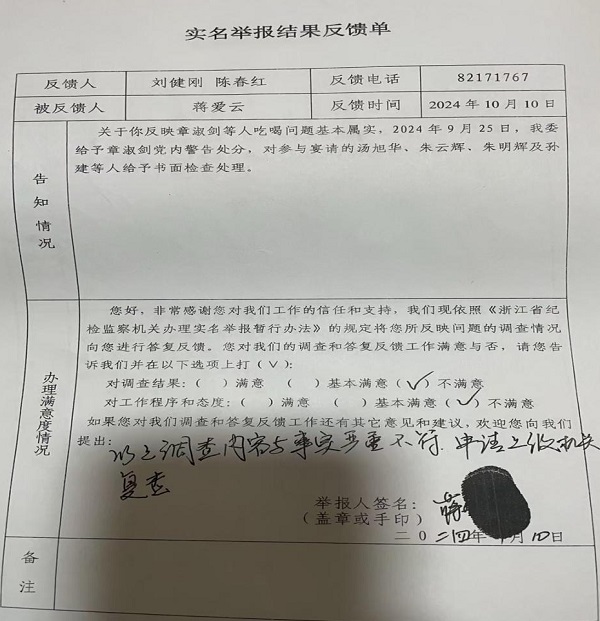 实名举报结果反馈单
反馈人 刘健刚 陈春红 反馈电话 82171767
被反馈人 蒋爱云 反馈时间 2024 年 10 月 10 日
告知情况
关于你反映章淑剑等人吃喝问题基本属实，2024 年 9 月 25 日，我委
给予章淑剑党内警告处分，对参与宴请的汤旭华、朱云辉、朱明辉及孙
建等人给予书面检查处理。
办理满意度情况
您好，非常感谢您对我们工作的信任和支持，我们现依照《浙江省纪
检监察机关办理实名举报暂行办法》的规定将您所反映问题的调查情况
向您进行答复反馈。您对我们的调查和答复反馈工作满意与否，请您告
诉我们并在以下选项上打（√）：
对调查结果：（ ）满意 （ ）基本满意（√）不满意
对工作程序和态度：（ ）满意 （ ）基本满意（√）不满意
如果您对我们调查和答复反馈工作还有其它意见和建议，欢迎您向我们
提出：以上调查内容与事实严重不符．申请上级机关
复查
举报人签名：蒋
（盖章或手印）
二0二四年 月 四日
备注